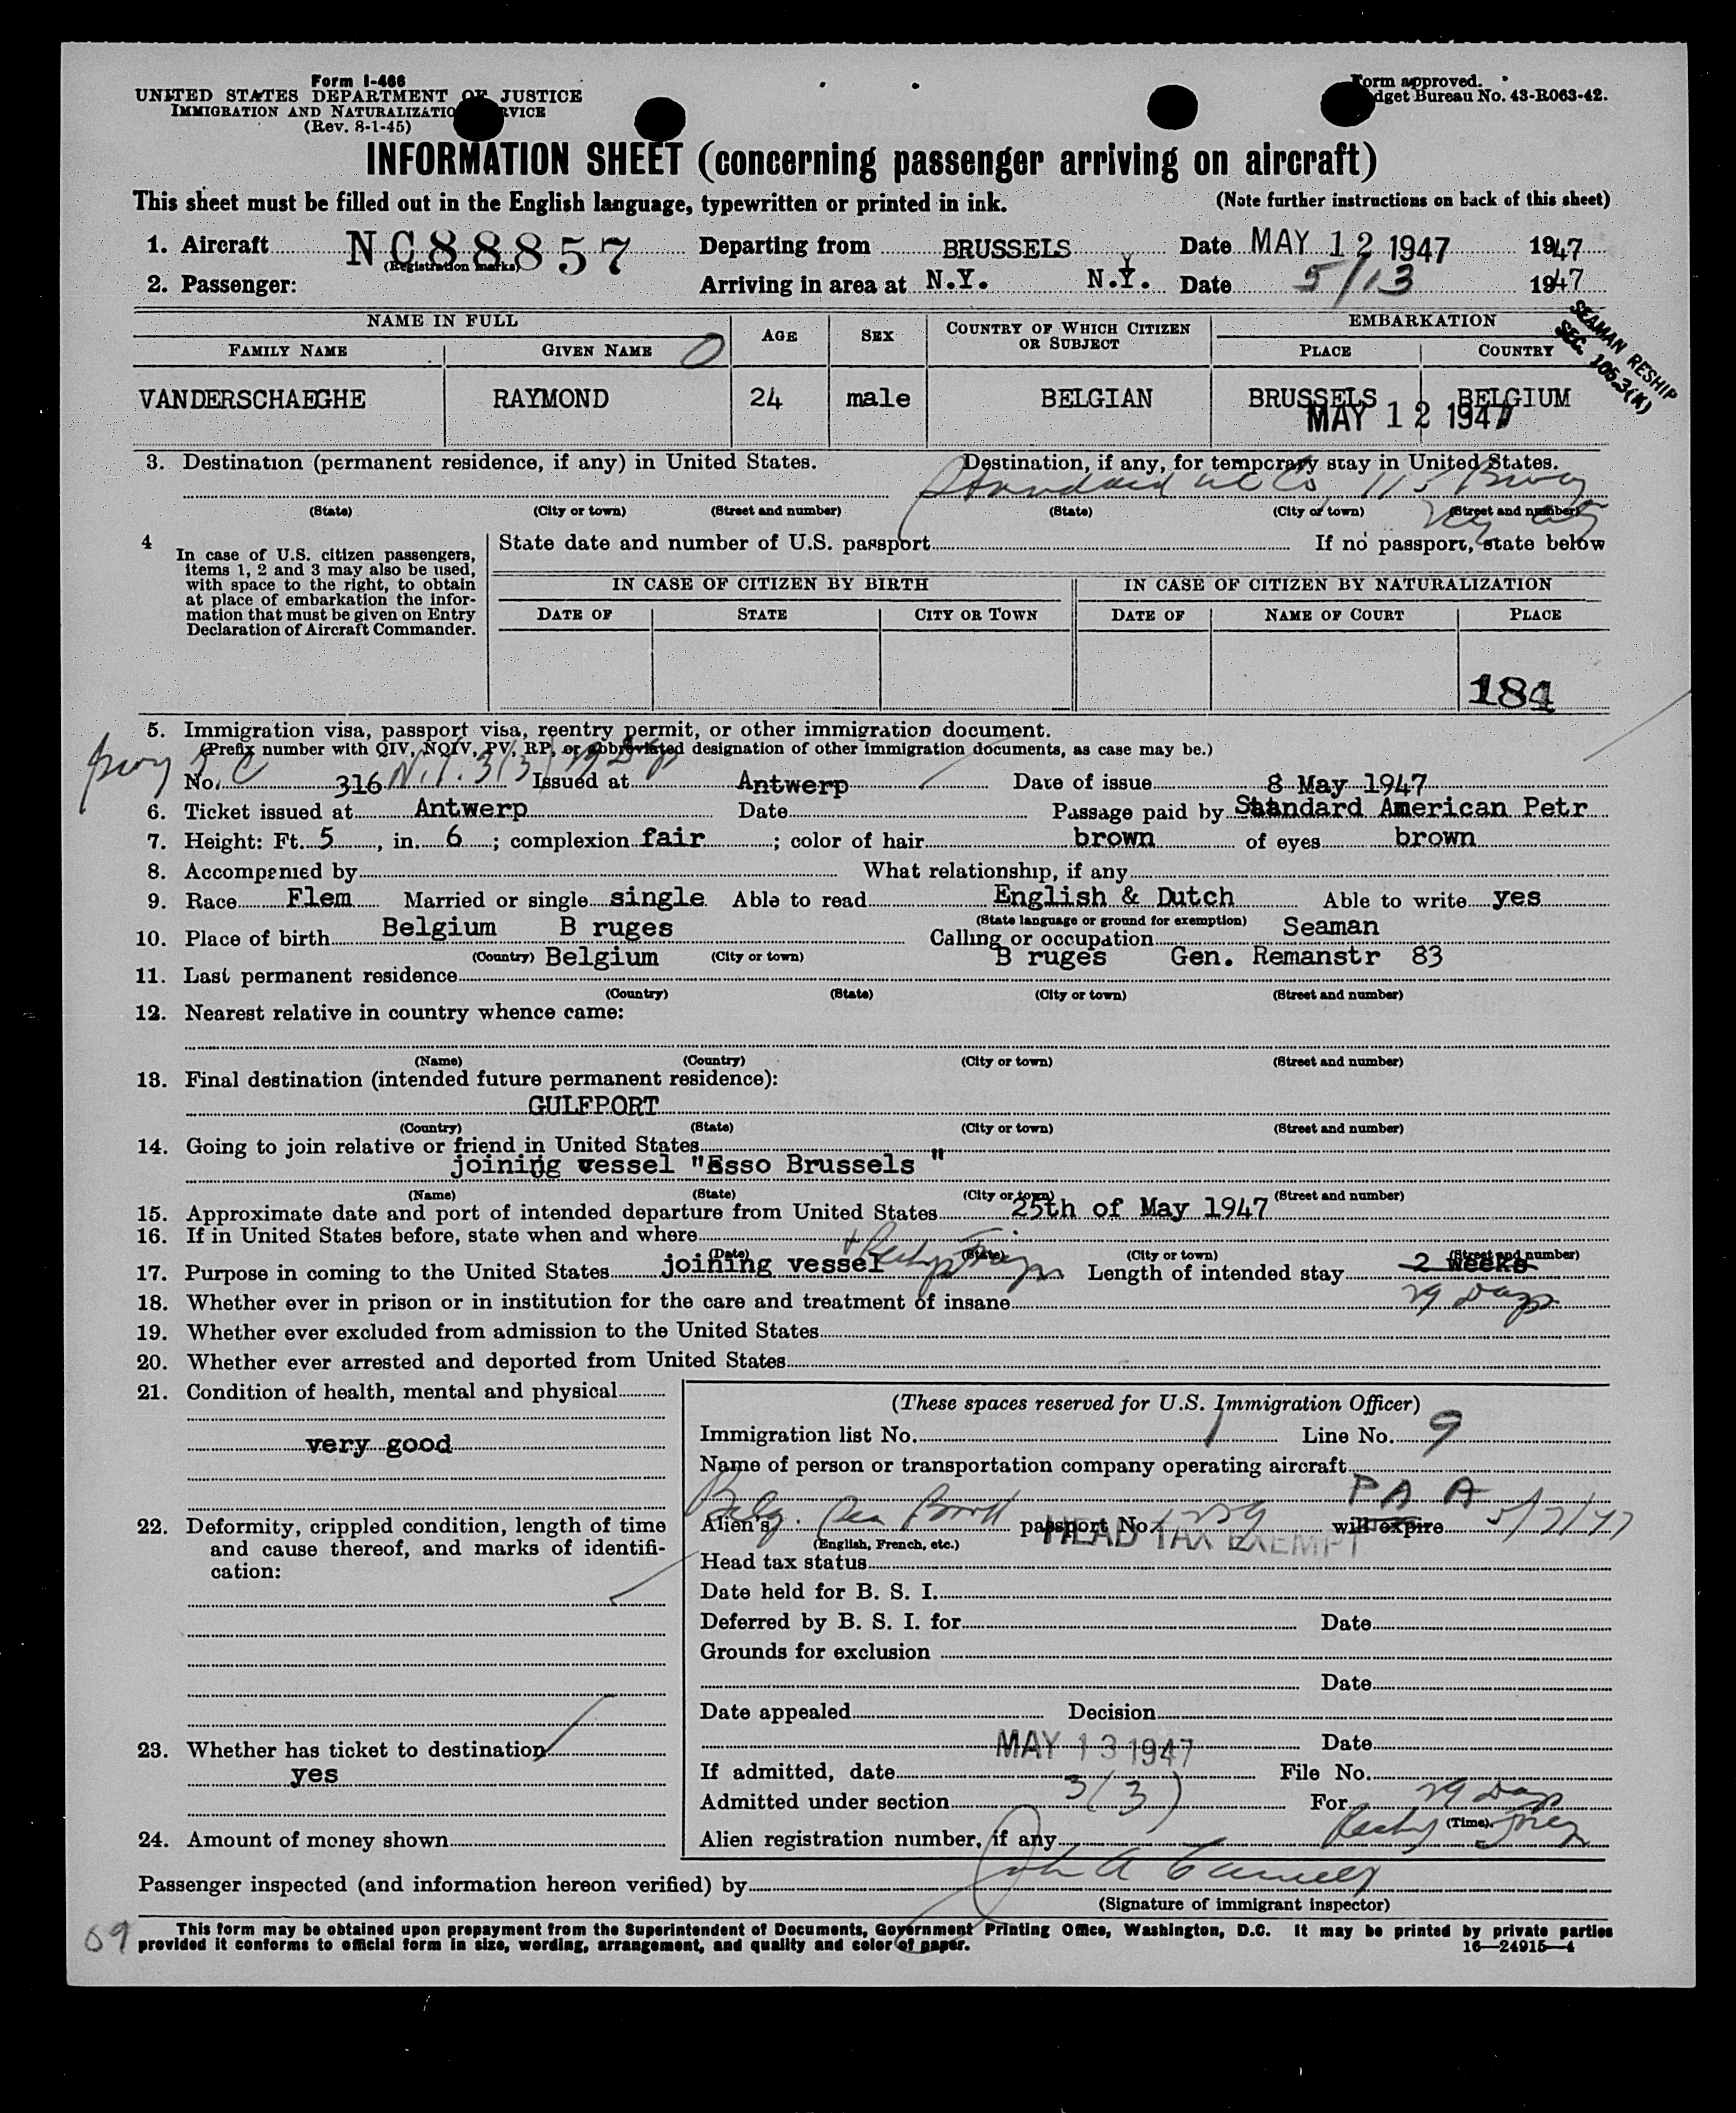 Form I-466
UNITED STATES DEPARTMENT OF JUSTICE
IMMIGRATION AND NATURALIZATIO RVICE
(Rev. 8-1-45)
Form approved.
dget Bureau No. 43-R063-42.
INFORMATION SHEET (concerning passenger arriving on aircraft)
This sheet must be filled out in the English language, typewritten or printed in ink. (Note further instructions on back of this sheet)
1. Aircraft NC88857 Departing from BRUSSELS Date MAY 12 1947 1947
(Registration marks)
2. Passenger: Arriving in area at N.Y. N.Y. Date 5/13 1947
SEAMAN RESHIP
SEC. 105.3(K)
NAME IN FULL AGE SEX COUNTRY OF WHICH CITIZEN OR SUBJECT EMBARKATION
FAMILY NAME GIVEN NAME PLACE COUNTRY
VANDERSCHAEGHE RAYMOND 24 male BELGIAN BRUSSELS BELGIUM
MAY 12 1947
3. Destination (permanent residence, if any) in United States. Destination, if any, for temporary stay in United States.
Standard Oil Co 115 Bway
(State) (City or town) (Street and number) (State) (City or town) (Street and number)
4 In case of U.S. citizen passengers, items 1, 2 and 3 may also be used, with space to the right, to obtain at place of embarkation the information that must be given on Entry Declaration of Aircraft Commander.
State date and number of U.S. passport If no passport, state below
IN CASE OF CITIZEN BY BIRTH IN CASE OF CITIZEN BY NATURALIZATION
DATE OF STATE CITY OR TOWN DATE OF NAME OF COURT PLACE
184
5. Immigration visa, passport visa, reentry permit, or other immigration document.
(Prefix number with QIV, NQIV, PV, RP, or abbreviated designation of other immigration documents, as case may be.)
No. 316 N.I. 3(3) 29 Days Issued at Antwerp Date of issue 8 May 1947
6. Ticket issued at Antwerp Date Passage paid by Standard American Petr
7. Height: Ft. 5, in. 6; complexion fair; color of hair brown of eyes brown
8. Accompanied by What relationship, if any
9. Race Flem Married or single single Able to read English & Dutch Able to write yes
(State language or ground for exemption)
10. Place of birth Belgium B ruges Calling or occupation Seaman
(Country) (City or town)
11. Last permanent residence Belgium B ruges Gen. Remanstr 83
(Country) (State) (City or town) (Street and number)
12. Nearest relative in country whence came:
(Name) (Country) (City or town) (Street and number)
13. Final destination (intended future permanent residence):
GULFPORT
(Country) (State) (City or town) (Street and number)
14. Going to join relative or friend in United States
joining vessel "Esso Brussels "
(Name) (State) (City or town) (Street and number)
15. Approximate date and port of intended departure from United States 25th of May 1947
16. If in United States before, state when and where
(Date) (State) (City or town) (Street and number)
17. Purpose in coming to the United States joining vessel Length of intended stay 2 weeks
29 Days
18. Whether ever in prison or in institution for the care and treatment of insane
19. Whether ever excluded from admission to the United States
20. Whether ever arrested and deported from United States
21. Condition of health, mental and physical
very good
22. Deformity, crippled condition, length of time and cause thereof, and marks of identification:
23. Whether has ticket to destination
yes
24. Amount of money shown
(These spaces reserved for U.S. Immigration Officer)
Immigration list No. 1 Line No. 9
Name of person or transportation company operating aircraft
PAA
Alien's Belg. Sea passport No. 1259 will expire 5/7/47
(English, French, etc.)
HEAD TAX EXEMPT
Head tax status
Date held for B. S. I.
Deferred by B. S. I. for Date
Grounds for exclusion
Date
Date appealed Decision
Date
MAY 13 1947
If admitted, date File No.
Admitted under section 3(3) For 29 Days
(Time)
Alien registration number, if any
Passenger inspected (and information hereon verified) by John A
(Signature of immigrant inspector)
69
This form may be obtained upon prepayment from the Superintendent of Documents, Government Printing Office, Washington, D.C. It may be printed by private parties
provided it conforms to official form in size, wording, arrangement, and quality and color of paper. 16—24915—4